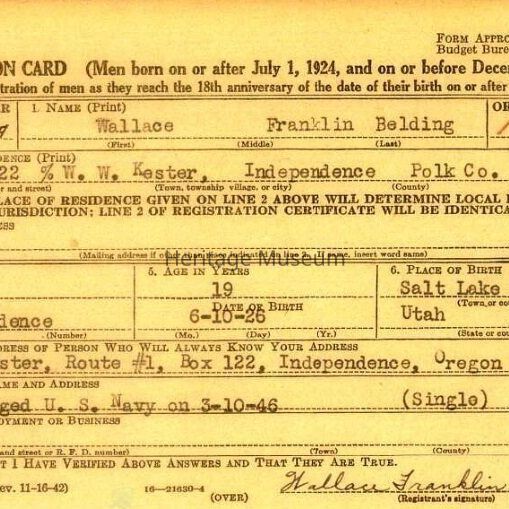 FORM APPRO
Budget Bure
ON CARD (Men born on or after July 1, 1924, and on or before Decem
tration of men as they reach the 18th anniversary of the date of their birth on or after
ER 1. NAME (Print) OR
Wallace Franklin Belding
(First) (Middle) (Last)
DENCE (Print)
22 % W. W. Kester, Independence Polk Co.
er and street) (Town, township village, or city) (County)
LACE OF RESIDENCE GIVEN ON LINE 2 ABOVE WILL DETERMINE LOCAL
URISDICTION; LINE 2 OF REGISTRATION CERTIFICATE WILL BE IDENTICA
ESS
(Mailing address if other than place indicated on line 2. If same, insert word same)
Heritage Museum
5. AGE IN YEARS 6. PLACE OF BIRTH
19 Salt Lake
DATE OF BIRTH (Town, or cou
dence 6-10-26 Utah
(Number) (Mo.) (Day) (Yr.) (State or cou
DRESS OF PERSON WHO WILL ALWAYS KNOW YOUR ADDRESS
ster, Route #1, Box 122, Independence, Oregon
AME AND ADDRESS
ged U. S. Navy on 3-10-46 (Single)
OYMENT OR BUSINESS
and street or R. F. D. number) (Town) (County)
T I HAVE VERIFIED ABOVE ANSWERS AND THAT THEY ARE TRUE.
ev. 11-16-42) 16—21630-4 Wallace Franklin
(OVER) (Registrant's signature)